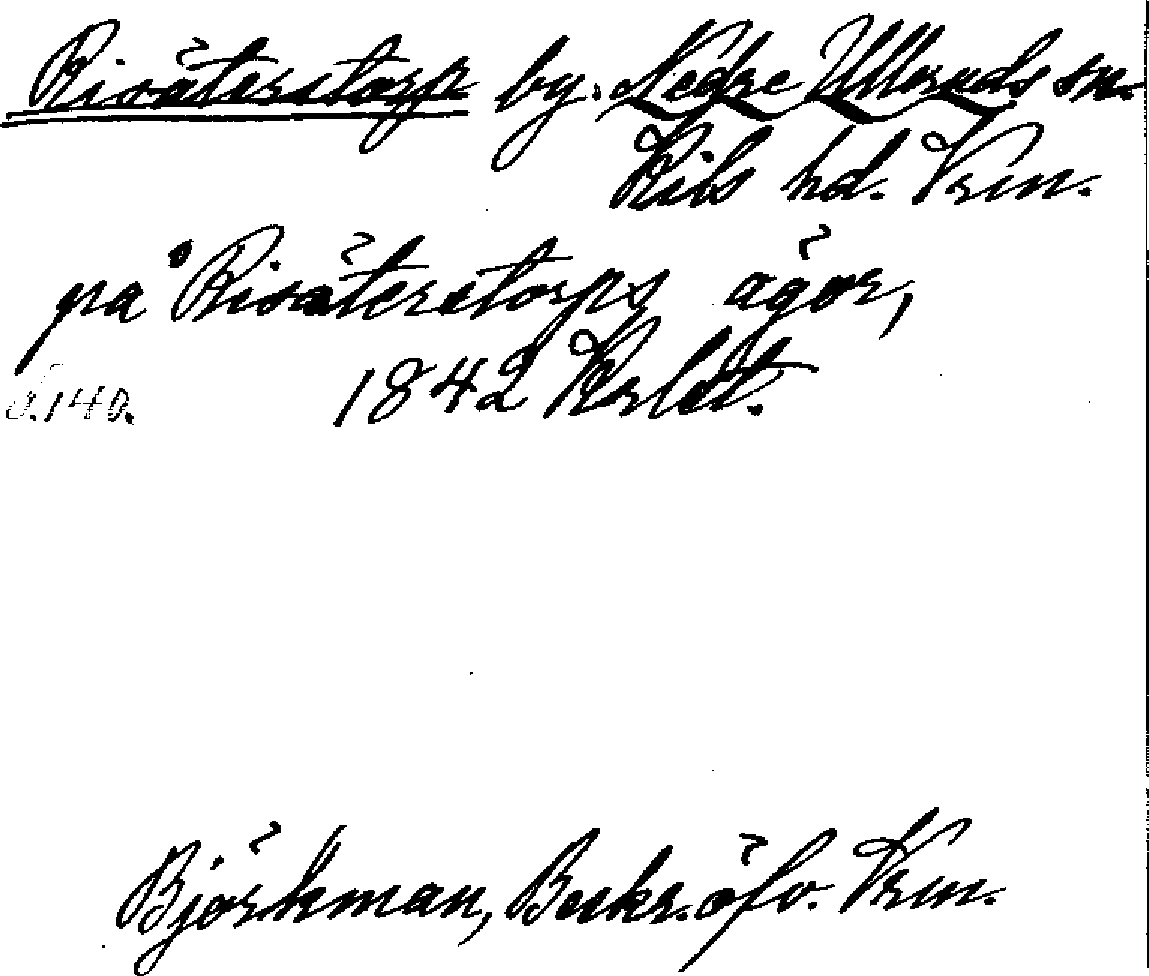 Risäterstorp by. Nedre Ulleruds sn.
Kils hd. Vrm.
på Risäterstorps ägor,
S. 140. 1842 Krldt.
Björkman, Beskr. öfv. Vrm.